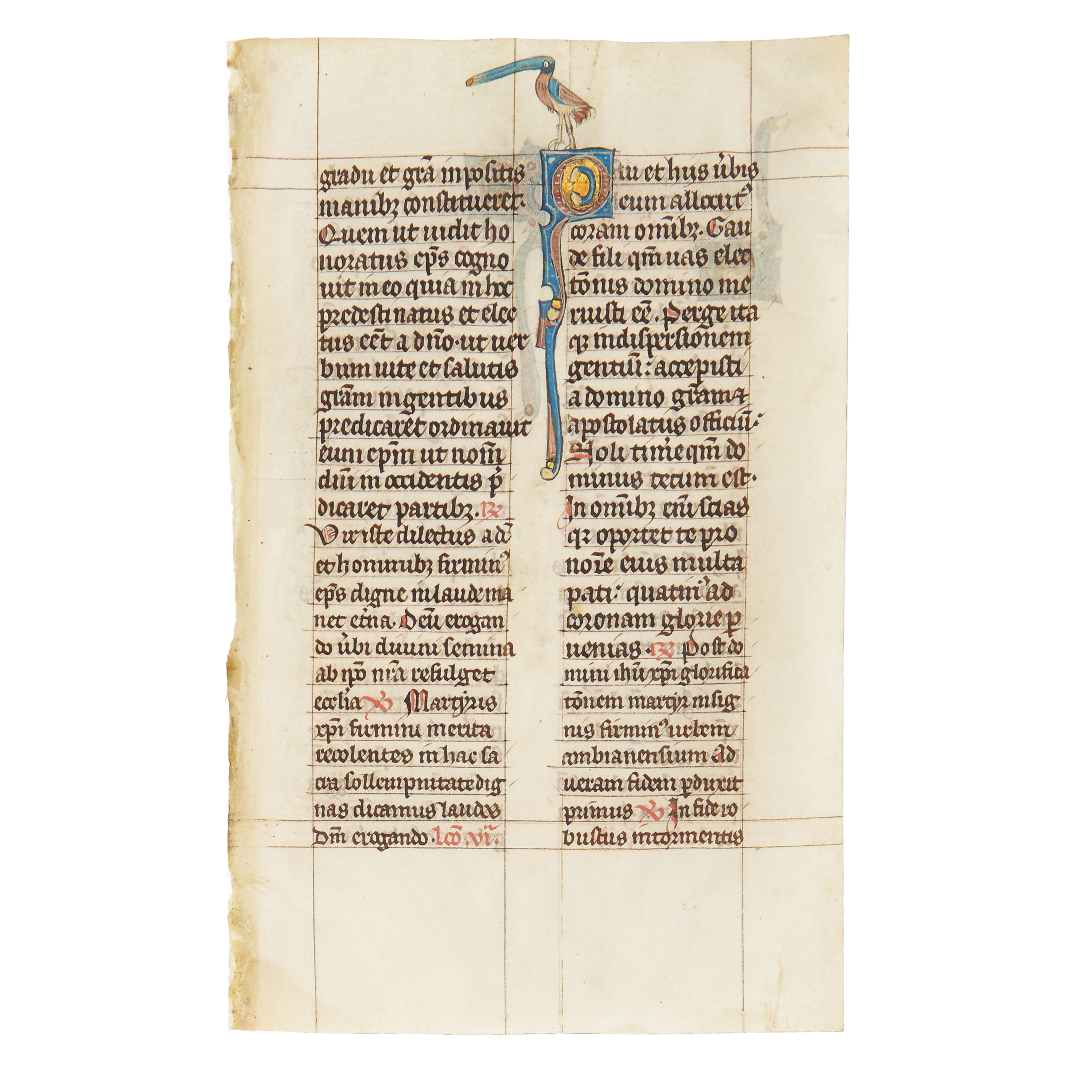 gradu et grã inpositis
manibꝫ constitueret.
Quem ut uidit ho
noratus ep̃s cogno
uit in eo quia in hoc
predestinatus et elec
tus eẽt a dño. ut uer
bum uite et salutis
grãm in gentibus
predicaret ordinauit
eum ep̃m ut nom̃
diũ in occidentis p̃
dicaret partibꝫ. ℟
Vir iste dilectus a dõ
et hominibꝫ firminꝰ
ep̃s digne in laude ma
net et̃na. Deũ erogan
do ũbi diuini semina
ab q̃o nr̃a refulget
ecclia ℣ Martyris
xp̃i firmini merita
recolentes in hac sa
cra sollempnitate dig
nas dicamus laudes
Dm̃ erogando. lcõ. vi.
P au et huis ũbis
eum allocutꝰ
coram omĩbꝫ. Gau
de fili qm̃ uas elec
tõnis domino me
ruisti eẽ. Perge ita
qꝫ in dispersionem
gentiũ: accepisti
a domino grãm ⁊
apostolatus officiũ.
Noli time qm̃ do
minus tecum est.
In omĩbꝫ eni scias
qꝛ oportet te pro
noĩe eius multa
pati: quatinꝰ ad
coronam glorie p
uenias. ℟ Post do
mini ihũ xp̃i glorifica
tõnem martyr insig
nis firminꝰ urbem
ambianensium ad
ueram fidem pduxit
primus ℣ In fide ro
bustus in tormentis